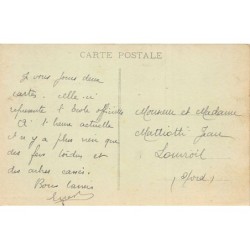 CARTE POSTALE
Je vous joins deux
cartes, celle-ci
représente l'école officielle
à l'heure actuelle
il n'y a plus rien que
des fers tordus et
des autres cassés.
Bons baisers
Monsieur et Madame
Mattiotti Jean
(Nord)